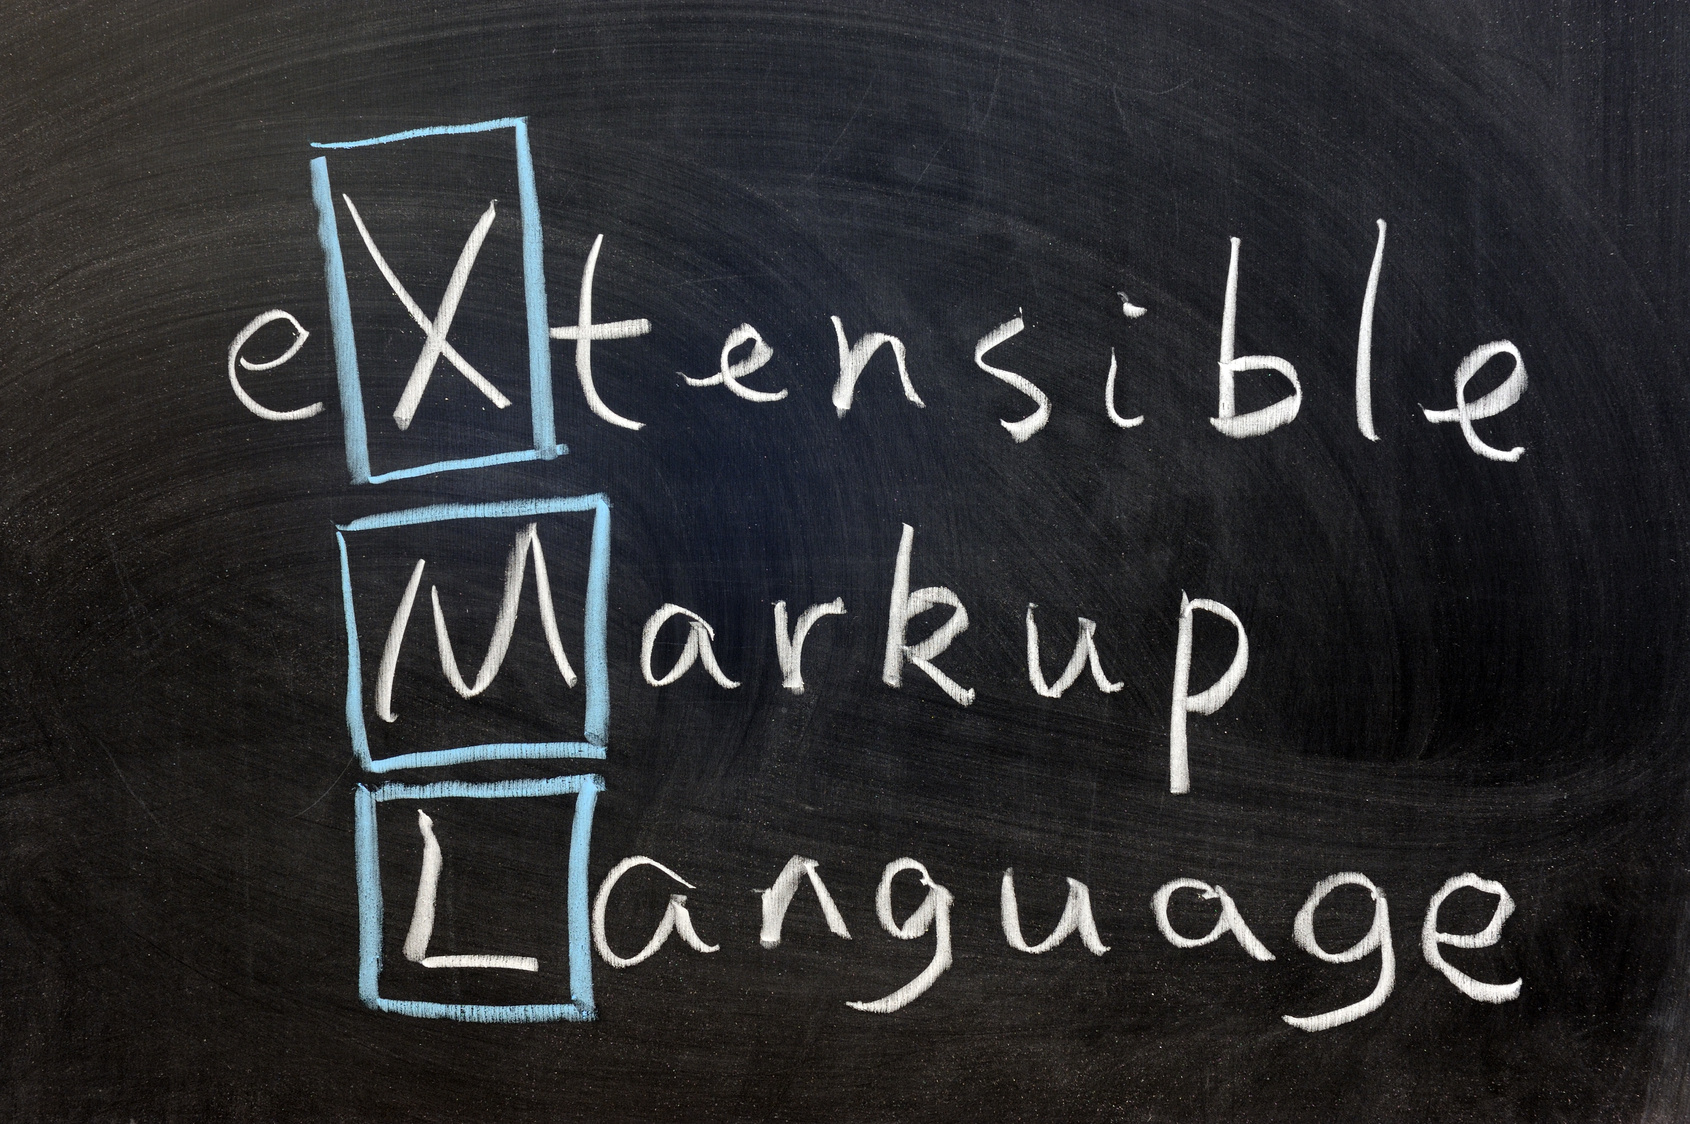 eXtensible
Markup
Language